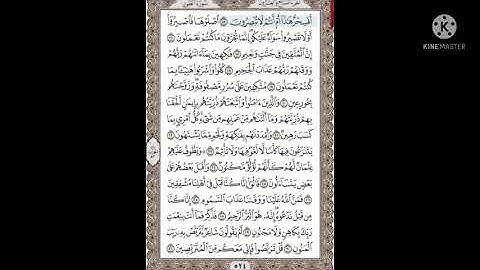 أَفَسِحْرٌ هَٰذَا أَمْ أَنتُمْ لَا تُبْصِرُونَ ١٥ ٱصْلَوْهَا فَٱصْبِرُوٓا۟
أَوْ لَا تَصْبِرُوا۟ سَوَآءٌ عَلَيْكُمْ إِنَّمَا تُجْزَوْنَ مَا كُنتُمْ تَعْمَلُونَ ١٦
إِنَّ ٱلْمُتَّقِينَ فِى جَنَّٰتٍ وَنَعِيمٍ ١٧ فَٰكِهِينَ بِمَآ ءَاتَىٰهُمْ رَبُّهُمْ
وَوَقَىٰهُمْ رَبُّهُمْ عَذَابَ ٱلْجَحِيمِ ١٨ كُلُوا۟ وَٱشْرَبُوا۟ هَنِيٓـًٔۢا بِمَا
كُنتُمْ تَعْمَلُونَ ١٩ مُتَّكِـِٔينَ عَلَىٰ سُرُرٍ مَّصْفُوفَةٍ وَزَوَّجْنَٰهُم
بِحُورٍ عِينٍ ٢٠ وَٱلَّذِينَ ءَامَنُوا۟ وَٱتَّبَعَتْهُمْ ذُرِّيَّتُهُم بِإِيمَٰنٍ أَلْحَقْنَا
بِهِمْ ذُرِّيَّتَهُمْ وَمَآ أَلَتْنَٰهُم مِّنْ عَمَلِهِم مِّن شَىْءٍ كُلُّ ٱمْرِئٍۭ بِمَا
كَسَبَ رَهِينٌ ٢١ وَأَمْدَدْنَٰهُم بِفَٰكِهَةٍ وَلَحْمٍ مِّمَّا يَشْتَهُونَ ٢٢
يَتَنَٰزَعُونَ فِيهَا كَأْسًا لَّا لَغْوٌ فِيهَا وَلَا تَأْثِيمٌ ٢٣ وَيَطُوفُ عَلَيْهِمْ
غِلْمَانٌ لَّهُمْ كَأَنَّهُمْ لُؤْلُؤٌ مَّكْنُونٌ ٢٤ وَأَقْبَلَ بَعْضُهُمْ عَلَىٰ
بَعْضٍ يَتَسَآءَلُونَ ٢٥ قَالُوٓا۟ إِنَّا كُنَّا قَبْلُ فِىٓ أَهْلِنَا مُشْفِقِينَ ٢٦
فَمَنَّ ٱللَّهُ عَلَيْنَا وَوَقَىٰنَا عَذَابَ ٱلسَّمُومِ ٢٧ إِنَّا كُنَّا
مِن قَبْلُ نَدْعُوهُ إِنَّهُۥ هُوَ ٱلْبَرُّ ٱلرَّحِيمُ ٢٨ فَذَكِّرْ فَمَآ أَنتَ بِنِعْمَتِ
رَبِّكَ بِكَاهِنٍ وَلَا مَجْنُونٍ ٢٩ أَمْ يَقُولُونَ شَاعِرٌ نَّتَرَبَّصُ بِهِۦ رَيْبَ
ٱلْمَنُونِ ٣٠ قُلْ تَرَبَّصُوا۟ فَإِنِّى مَعَكُم مِّنَ ٱلْمُتَرَبِّصِينَ ٣١
٥٢٤
KINEMASTER